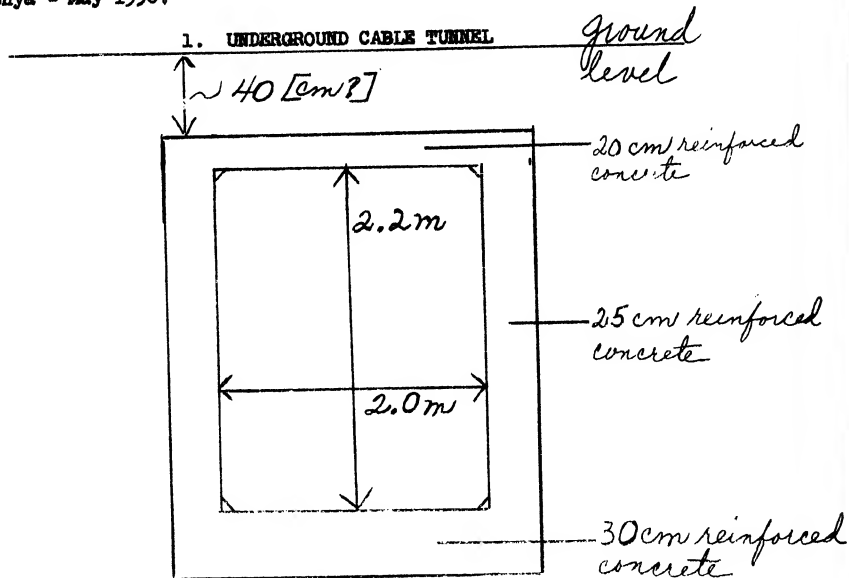 May 1958.
1. UNDERGROUND CABLE TUNNEL
ground
level
~ 40 [cm?]
20 cm reinforced
concrete
2.2m
25 cm reinforced
concrete
2.0m
30 cm reinforced
concrete